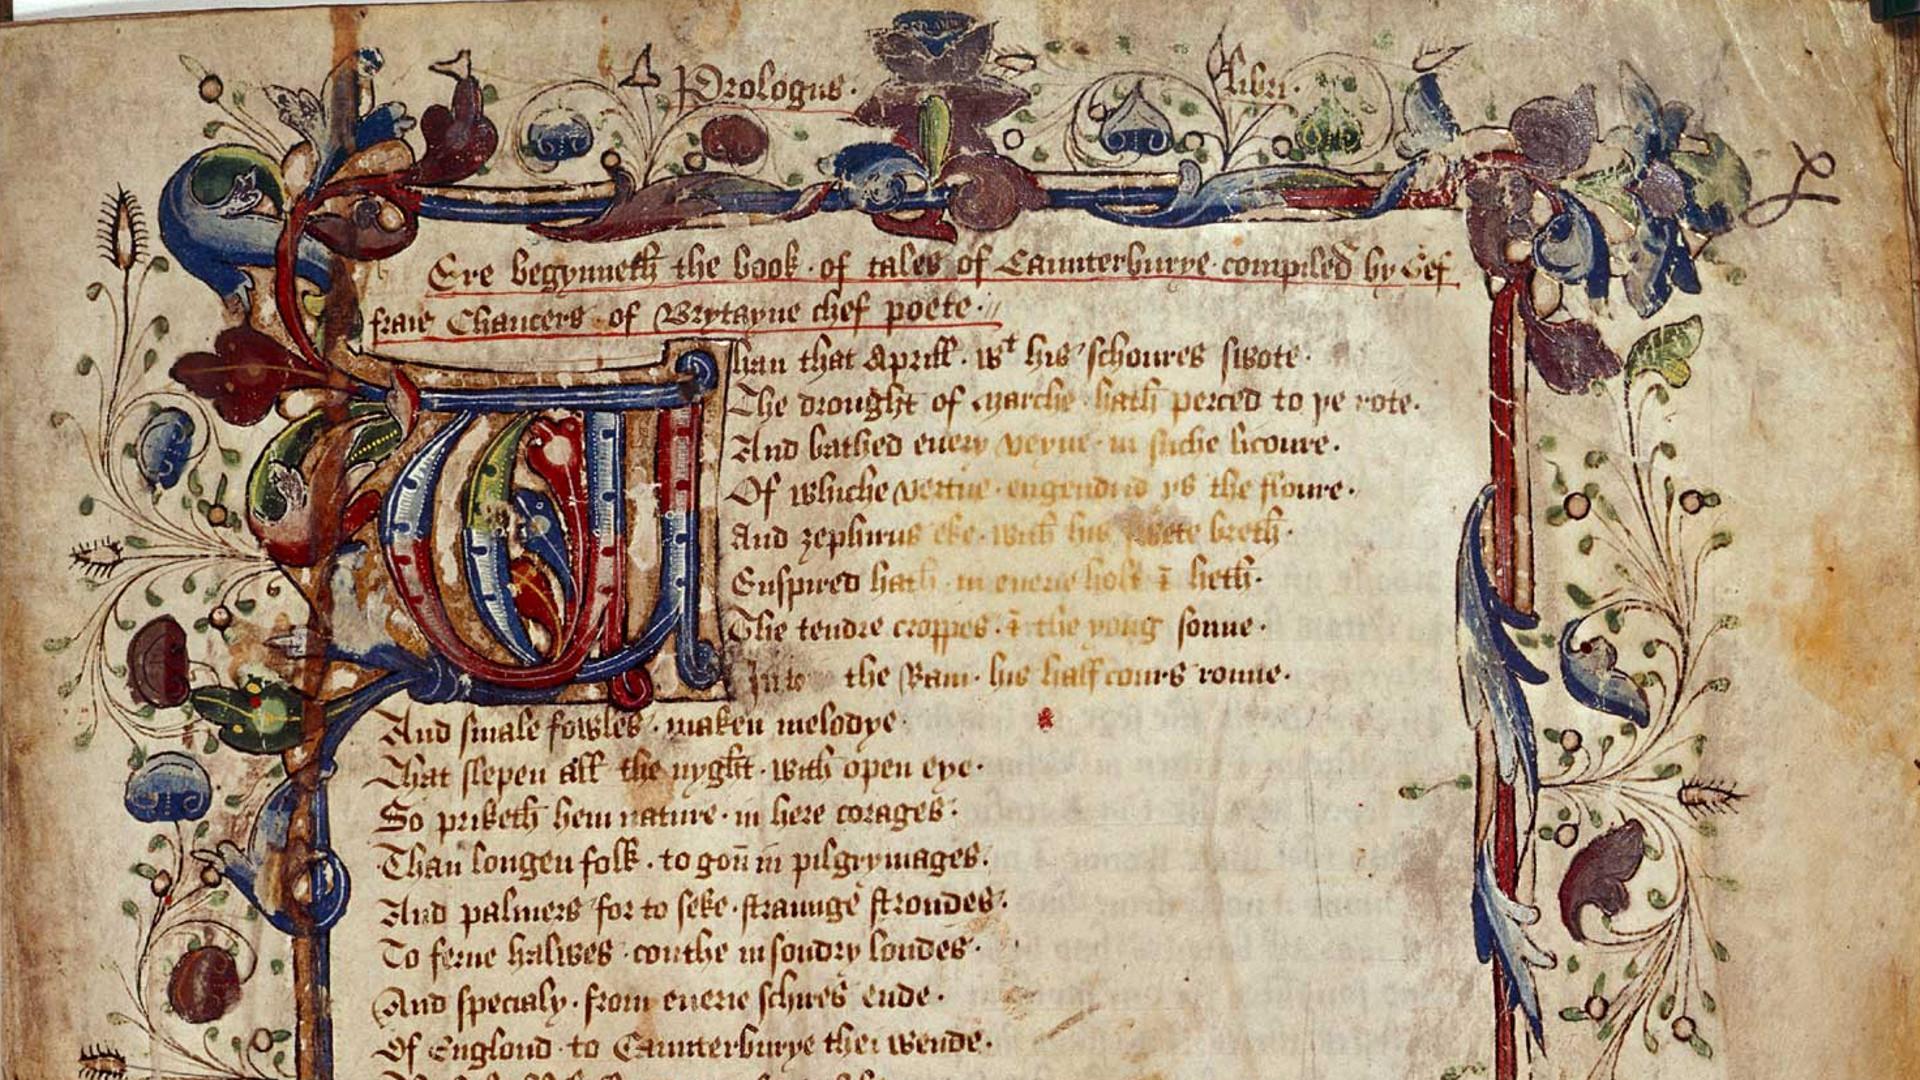 Prologus. libri.
Ere begynneth the book · of tales of Caunterburye · compiled by Gef
fraie Chaucers · of Brytayne chef poete ·
Whan that Aprill · wt his schoures swote ·
The drought of marche · hath perced to ye rote ·
And bathed euery veyne · in suche licoure ·
Of whiche vertue · engendrid ys the floure ·
And zephirus eke · with his swete breth ·
Enspired hath · in euerie holt ī heth ·
The tendre croppes · ī the yong sonne ·
Into the Ram · his half cours ronne ·
And smale fowles · maken melodye
That slepen all the nyght · with open eye ·
So priketh hem nature · in here corages ·
Than longen folk · to gon in pilgrymages ·
And palmers for to seke · straunge strondes ·
To ferne halwes · couthe in sondry londes ·
And specialy · from euerie schires ende ·
Of Englond · to Caunterburye thei wende ·